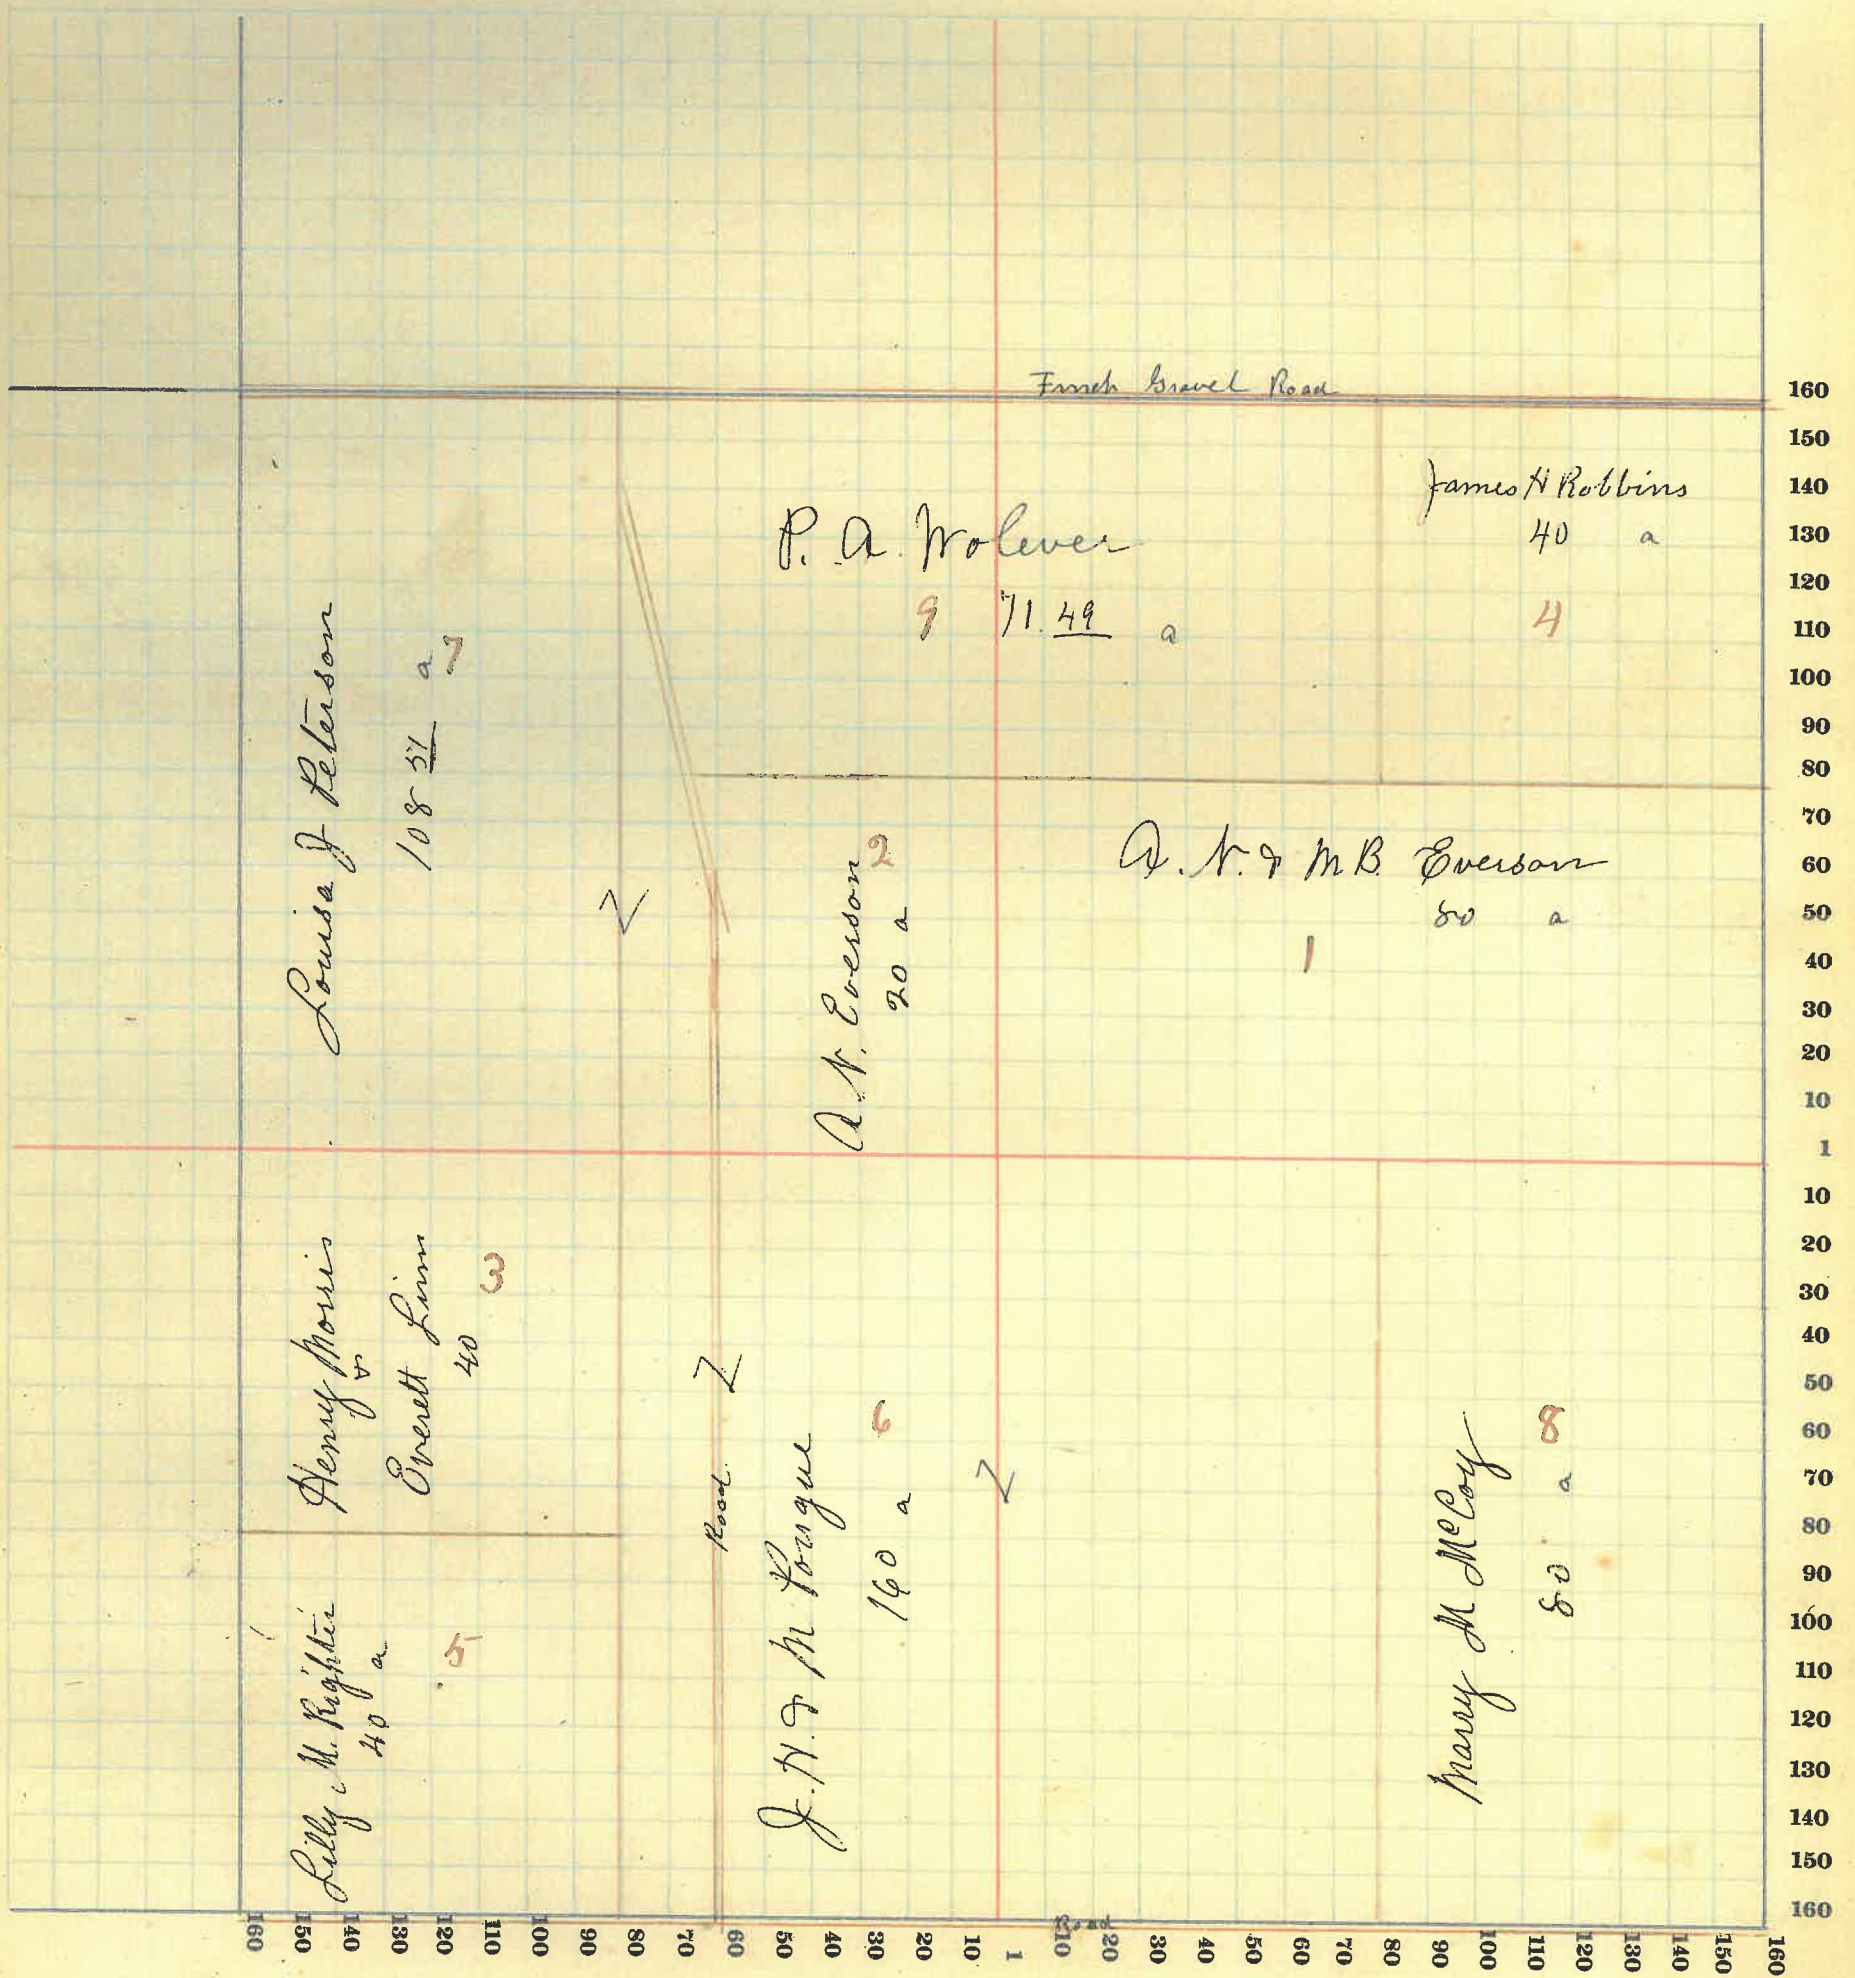 Finch Gravel Road
James H Robbins
40 a
4
P. A. Wolever
9 71.49 a
Louisa J Peterson
108 51 a
7
A. N. Everson
2
20 a
A. N. & M B. Everson
80 a
1
Henry Morris
&
Everett Linn
40
3
Lilly M. Righter
40 a
5
Road
J. H. & M
160 a
6
Marry M McCoy
80 a
8
Road
160
150
140
130
120
110
100
90
80
70
60
50
40
30
20
10
1
10
20
30
40
50
60
70
80
90
100
110
120
130
140
150
160
160 150 140 130 120 110 100 90 80 70 60 50 40 30 20 10 1 10 20 30 40 50 60 70 80 90 100 110 120 130 140 150 160